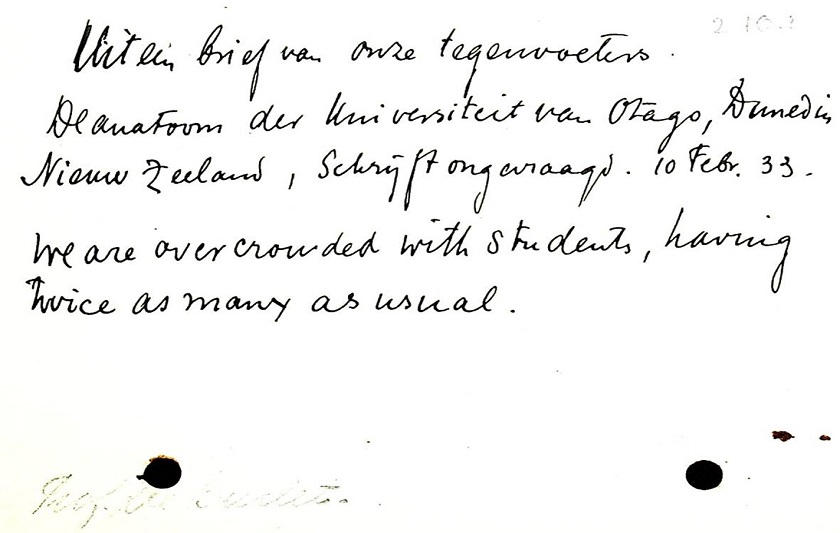 Uit ein brief van onze tegenvoeters.
De anatoom der Universiteit van Otago, Dunedin
Nieuw Zeeland, Schrijft ongevraagd. 10 Febr. 33.
We are overcrowded with students, having
twice as many as usual.